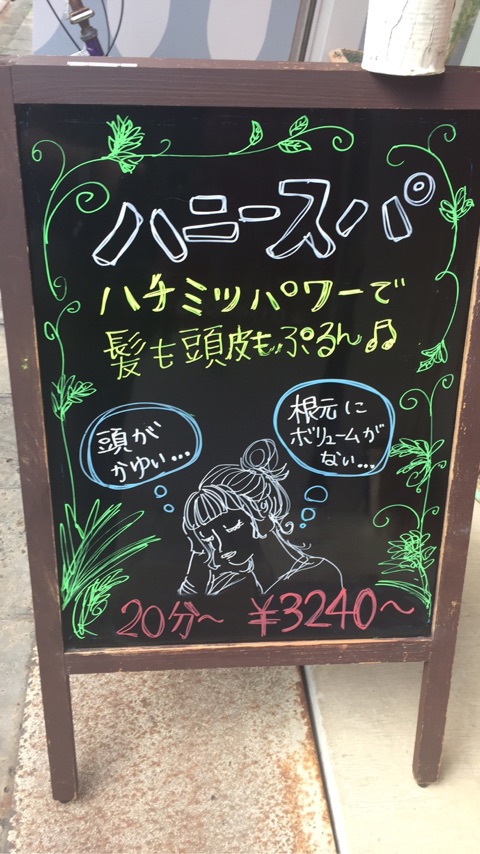 ハニースパ
ハチミツパワーで
髪も頭皮もぷるん♫
頭が
かゆい...
根元に
ボリュームが
ない...
20分～ ¥3240～